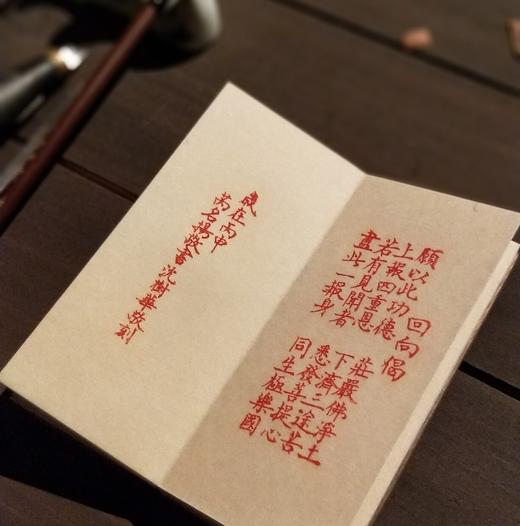 回向偈
願以此功德　莊嚴佛淨土
上報四重恩　下濟三途苦
若有見聞者　悉發菩提心
盡此一報身　同生極樂國
歲在丙申
萬名揚敬書沈樹華敬刻